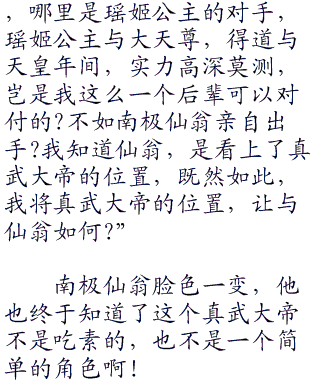 ，哪里是瑶姬公主的对手，
瑶姬公主与大天尊，得道与
天皇年间，实力高深莫测，
岂是我这么一个后辈可以对
付的?不如南极仙翁亲自出
手?我知道仙翁，是看上了真
武大帝的位置，既然如此，
我将真武大帝的位置，让与
仙翁如何?”
南极仙翁脸色一变，他
也终于知道了这个真武大帝
不是吃素的，也不是一个简
单的角色啊！